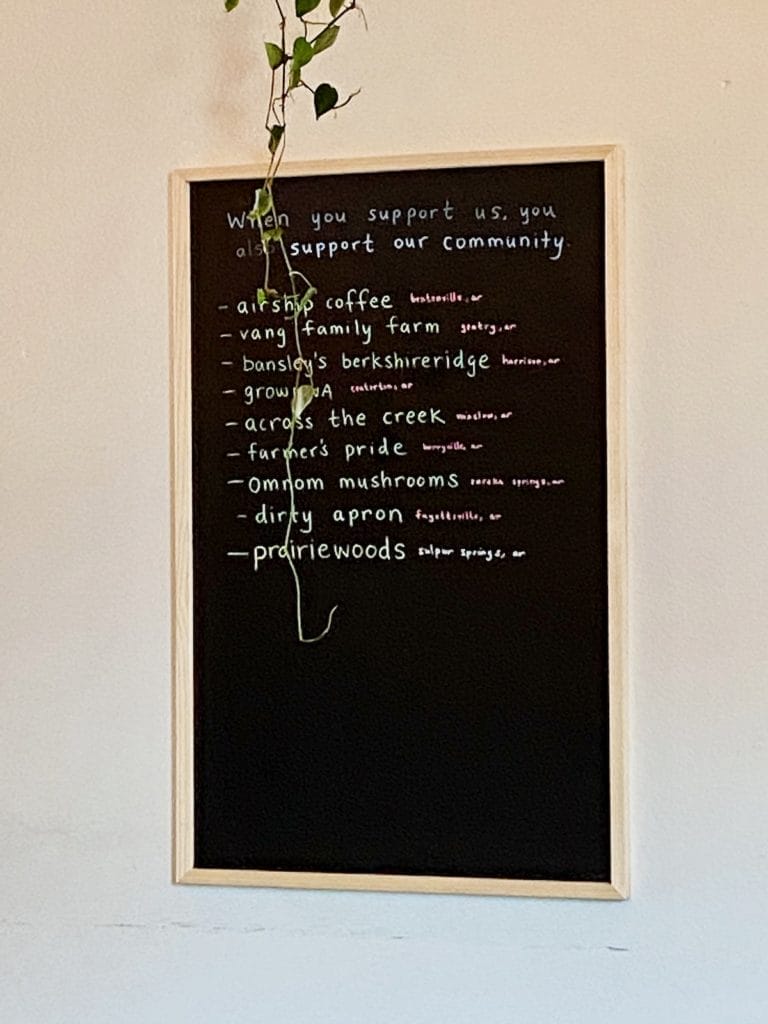 When you support us, you
also support our community.
- airship coffee bentonville, ar
- vang family farm gentry, ar
- bansley's berkshireridge harrison, ar
- grow NWA centerton, ar
- across the creek winslow, ar
- farmer's pride berryville, ar
- omnom mushrooms eureka springs, ar
- dirty apron fayetteville, ar
- prairiewoods sulpur springs, ar